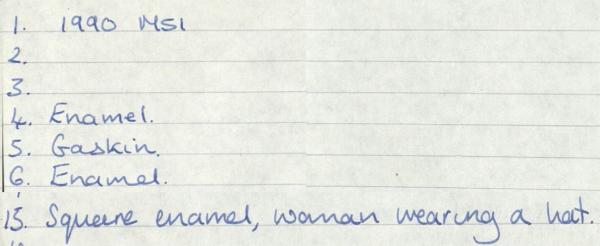 1. 1990 MSI
2.
3.
4. Enamel.
5. Gaskin.
6. Enamel.
15. Square enamel, woman wearing a hat.